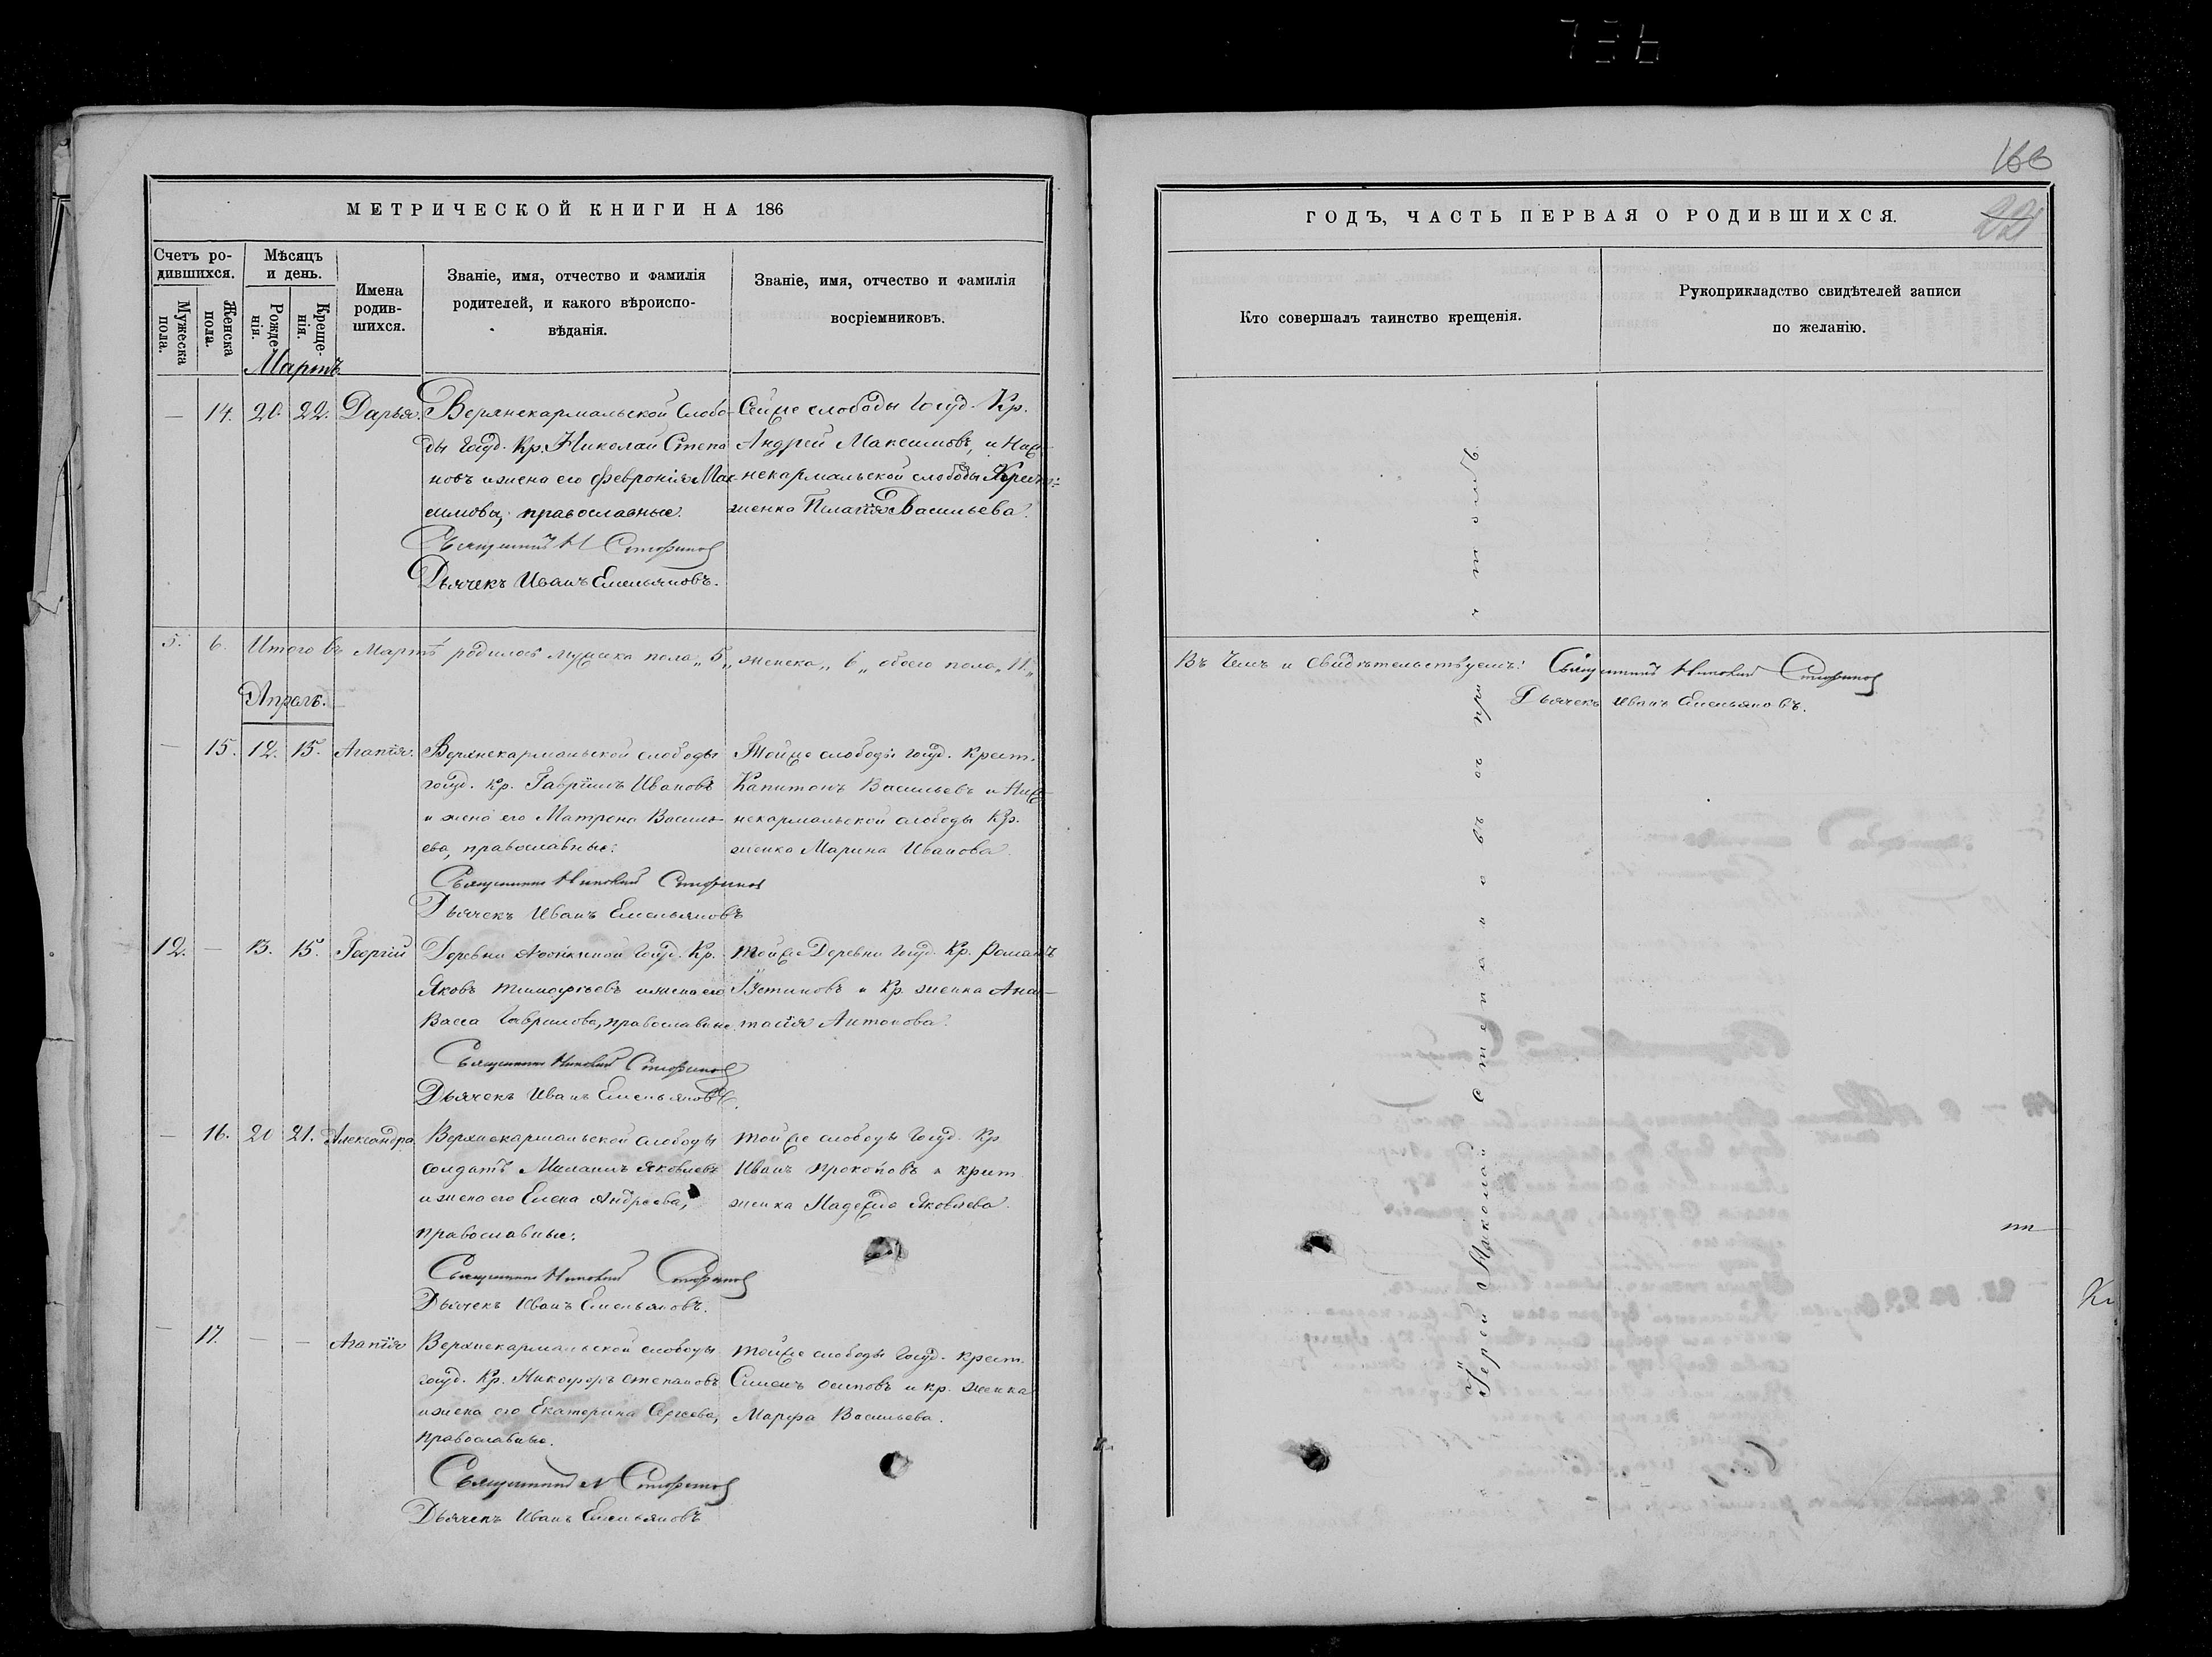 166
22
МЕТРИЧЕСКОЙ КНИГИ НА 186
Счетъ ро-
дившихся.
Мужеска
пола.
Женска
пола.
Мѣсяцъ
и день.
Рожде-
нія.
Креще-
нія.
Имена
родив-
шихся.
Званіе, имя, отчество и фамилія
родителей, и какого вѣроиспо-
вѣданія.
Званіе, имя, отчество и фамилія
воспріемниковъ.
Мартъ
— 14. 20. 22. Дарья. Верхнекармальской слобо-
ды Госуд. Кр. Николай Степа
новъ и жена его Феврония Мак
симова, православные.
Сей же слободы Госуд. Кр.
Андрей Максимовъ, и Ниж
некармальской слободы Крест:
женка Пелагія Васильева.
Священникъ Н
Дьячекъ Иванъ Емельяновъ.
5. 6. Итого въ Мартѣ родилось мужска пола „5„ женска „6„ обоего пола „11„
Апрѣль.
— 15. 12. 15. Агапія. Верхнекармальской слободы
госуд. Кр. Гавріилъ Ивановъ
и жена его Матрена Василь-
ева, православные.
Той же слободы госуд. Крест.
Капитонъ Васильевъ и Ниж
некармальской слободы Кр.
женка Марина Иванова.
Священникъ Николай
Дьячекъ Иванъ Емельяновъ
12. — 13. 15. Георгій Деревни Госуд. Кр.
Яковъ Тимофѣевъ и жена его
Васса Гаврилова, православные
той же Деревни Госуд. Кр. Романъ
Устиновъ и Кр. женка Анас-
тасія Антонова.
Священникъ Николай
Дьячекъ Иванъ Емельяновъ.
— 16. 20 21. Александра. Верхнекармальской слободы
солдатъ Яковлевъ
и жена его Елена Андреева,
православные.
той же слободы Госуд. Кр
Иванъ Прокоповъ и крест
женка Надежда Яковлева.
Священникъ Николай
Дьячекъ Иванъ Емельяновъ.
— 17. — — Агапія Верхнекармальской слободы
госуд. Кр. Никифоръ Степановъ
и жена его Екатерина Сергеева,
православные.
той же слободы Госуд. крест.
Симонъ Осиповъ и кр. женка
Марфа Васильева.
Священникъ Н
Дьячекъ Иванъ Емельяновъ
ГОДЪ, ЧАСТЬ ПЕРВАЯ О РОДИВШИХСЯ.
Кто совершалъ таинство крещенія.
Рукоприкладство свидѣтелей записи
по желанію.
Въ чемъ и свидѣтельствуемъ: Священникъ Николай
Дьячекъ Иванъ Емельяновъ.
Іерей Николай Степановъ съ причтомъ